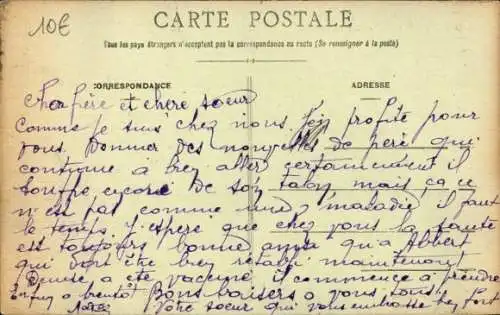 10€
CARTE POSTALE
Tous les pays étrangers n'acceptent pas la correspondance au recto (Se renseigner à la poste)
CORRESPONDANCE
ADRESSE
Cher frère et chère soeur
Comme je suis chez nous j'en profite pour
vous donner des nouvelles de père qui
continue a bien aller certainement il
souffre encore de son talon mais ça ce
n'est pas comme une maladie il faut
le temps j'espere que chez vous la santé
est toujours bonne qu'a Albert
qui doit être bien retabli maintenant
Denise a ete vacciné il commence a prendre
Enfin a bientôt Bons baisers a vous tous
Votre soeur qui vous embrasse bien fort